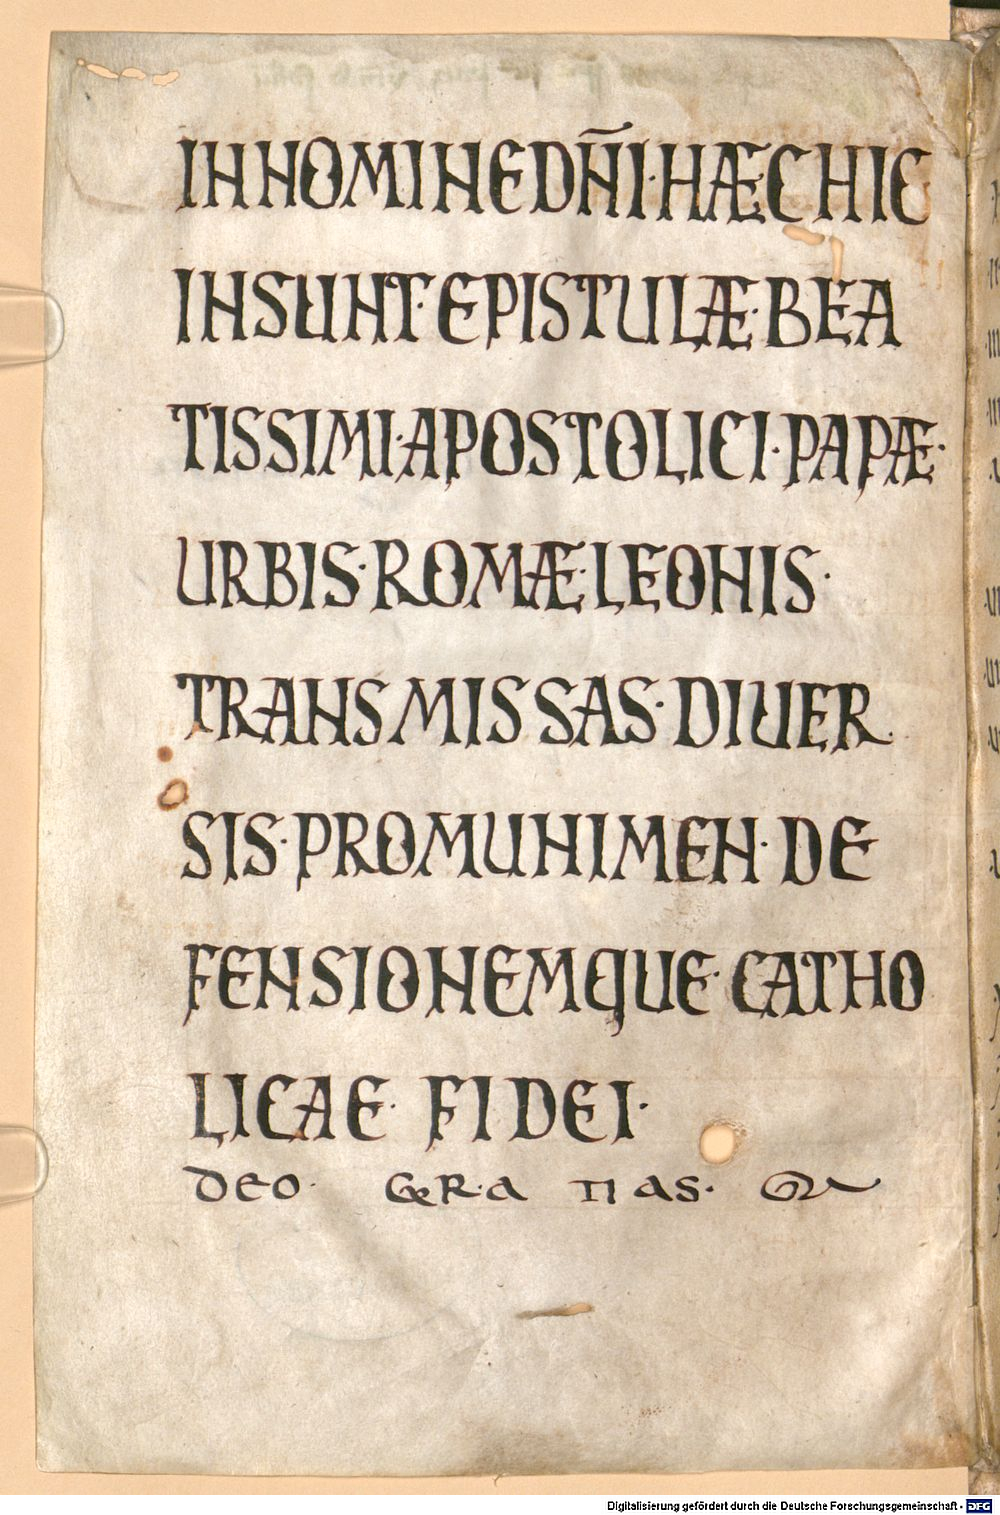 IN NOMINE DN̄I·HÆC HIC
INSUNT·EPISTULÆ·BEA
TISSIMI·APOSTOLICI·PAPÆ·
URBIS·ROMÆ·LEONIS·
TRANSMISSAS·DIUER
SIS·PROMUNIMEN·DE
FENSIONEMQUE·CATHO
LICAE·FIDEI·
DEO· GR·A TIAS·
Digitalisierung gefördert durch die Deutsche Forschungsgemeinschaft - DFG